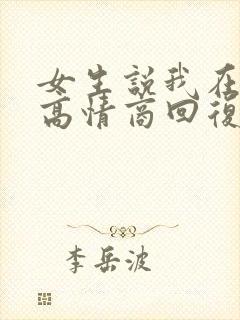 女生説我在
高情商回復
李岳波